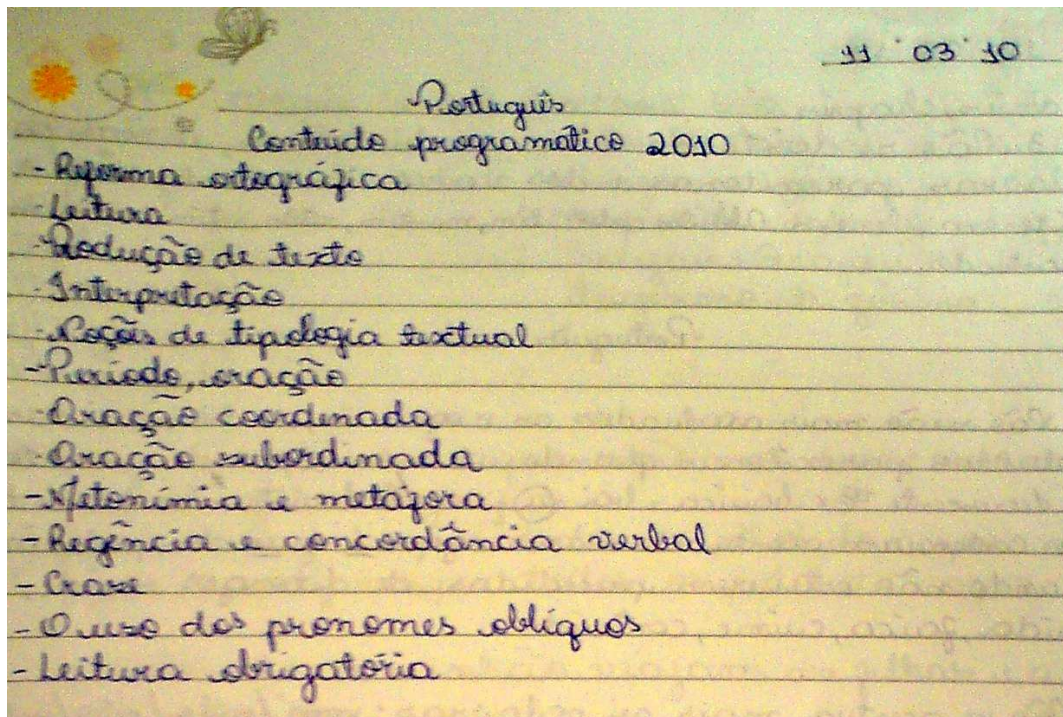 11 03 10
Português
Conteúdo programático 2010
- Reforma ortográfica
- Leitura
- Produção de texto
- Interpretação
- Noções de tipologia textual
- Período, oração
- Oração coordenada
- Oração subordinada
- Metonímia e metáfora
- Regência e concordância verbal
- Crase
- O uso dos pronomes oblíquos
- Leitura obrigatória